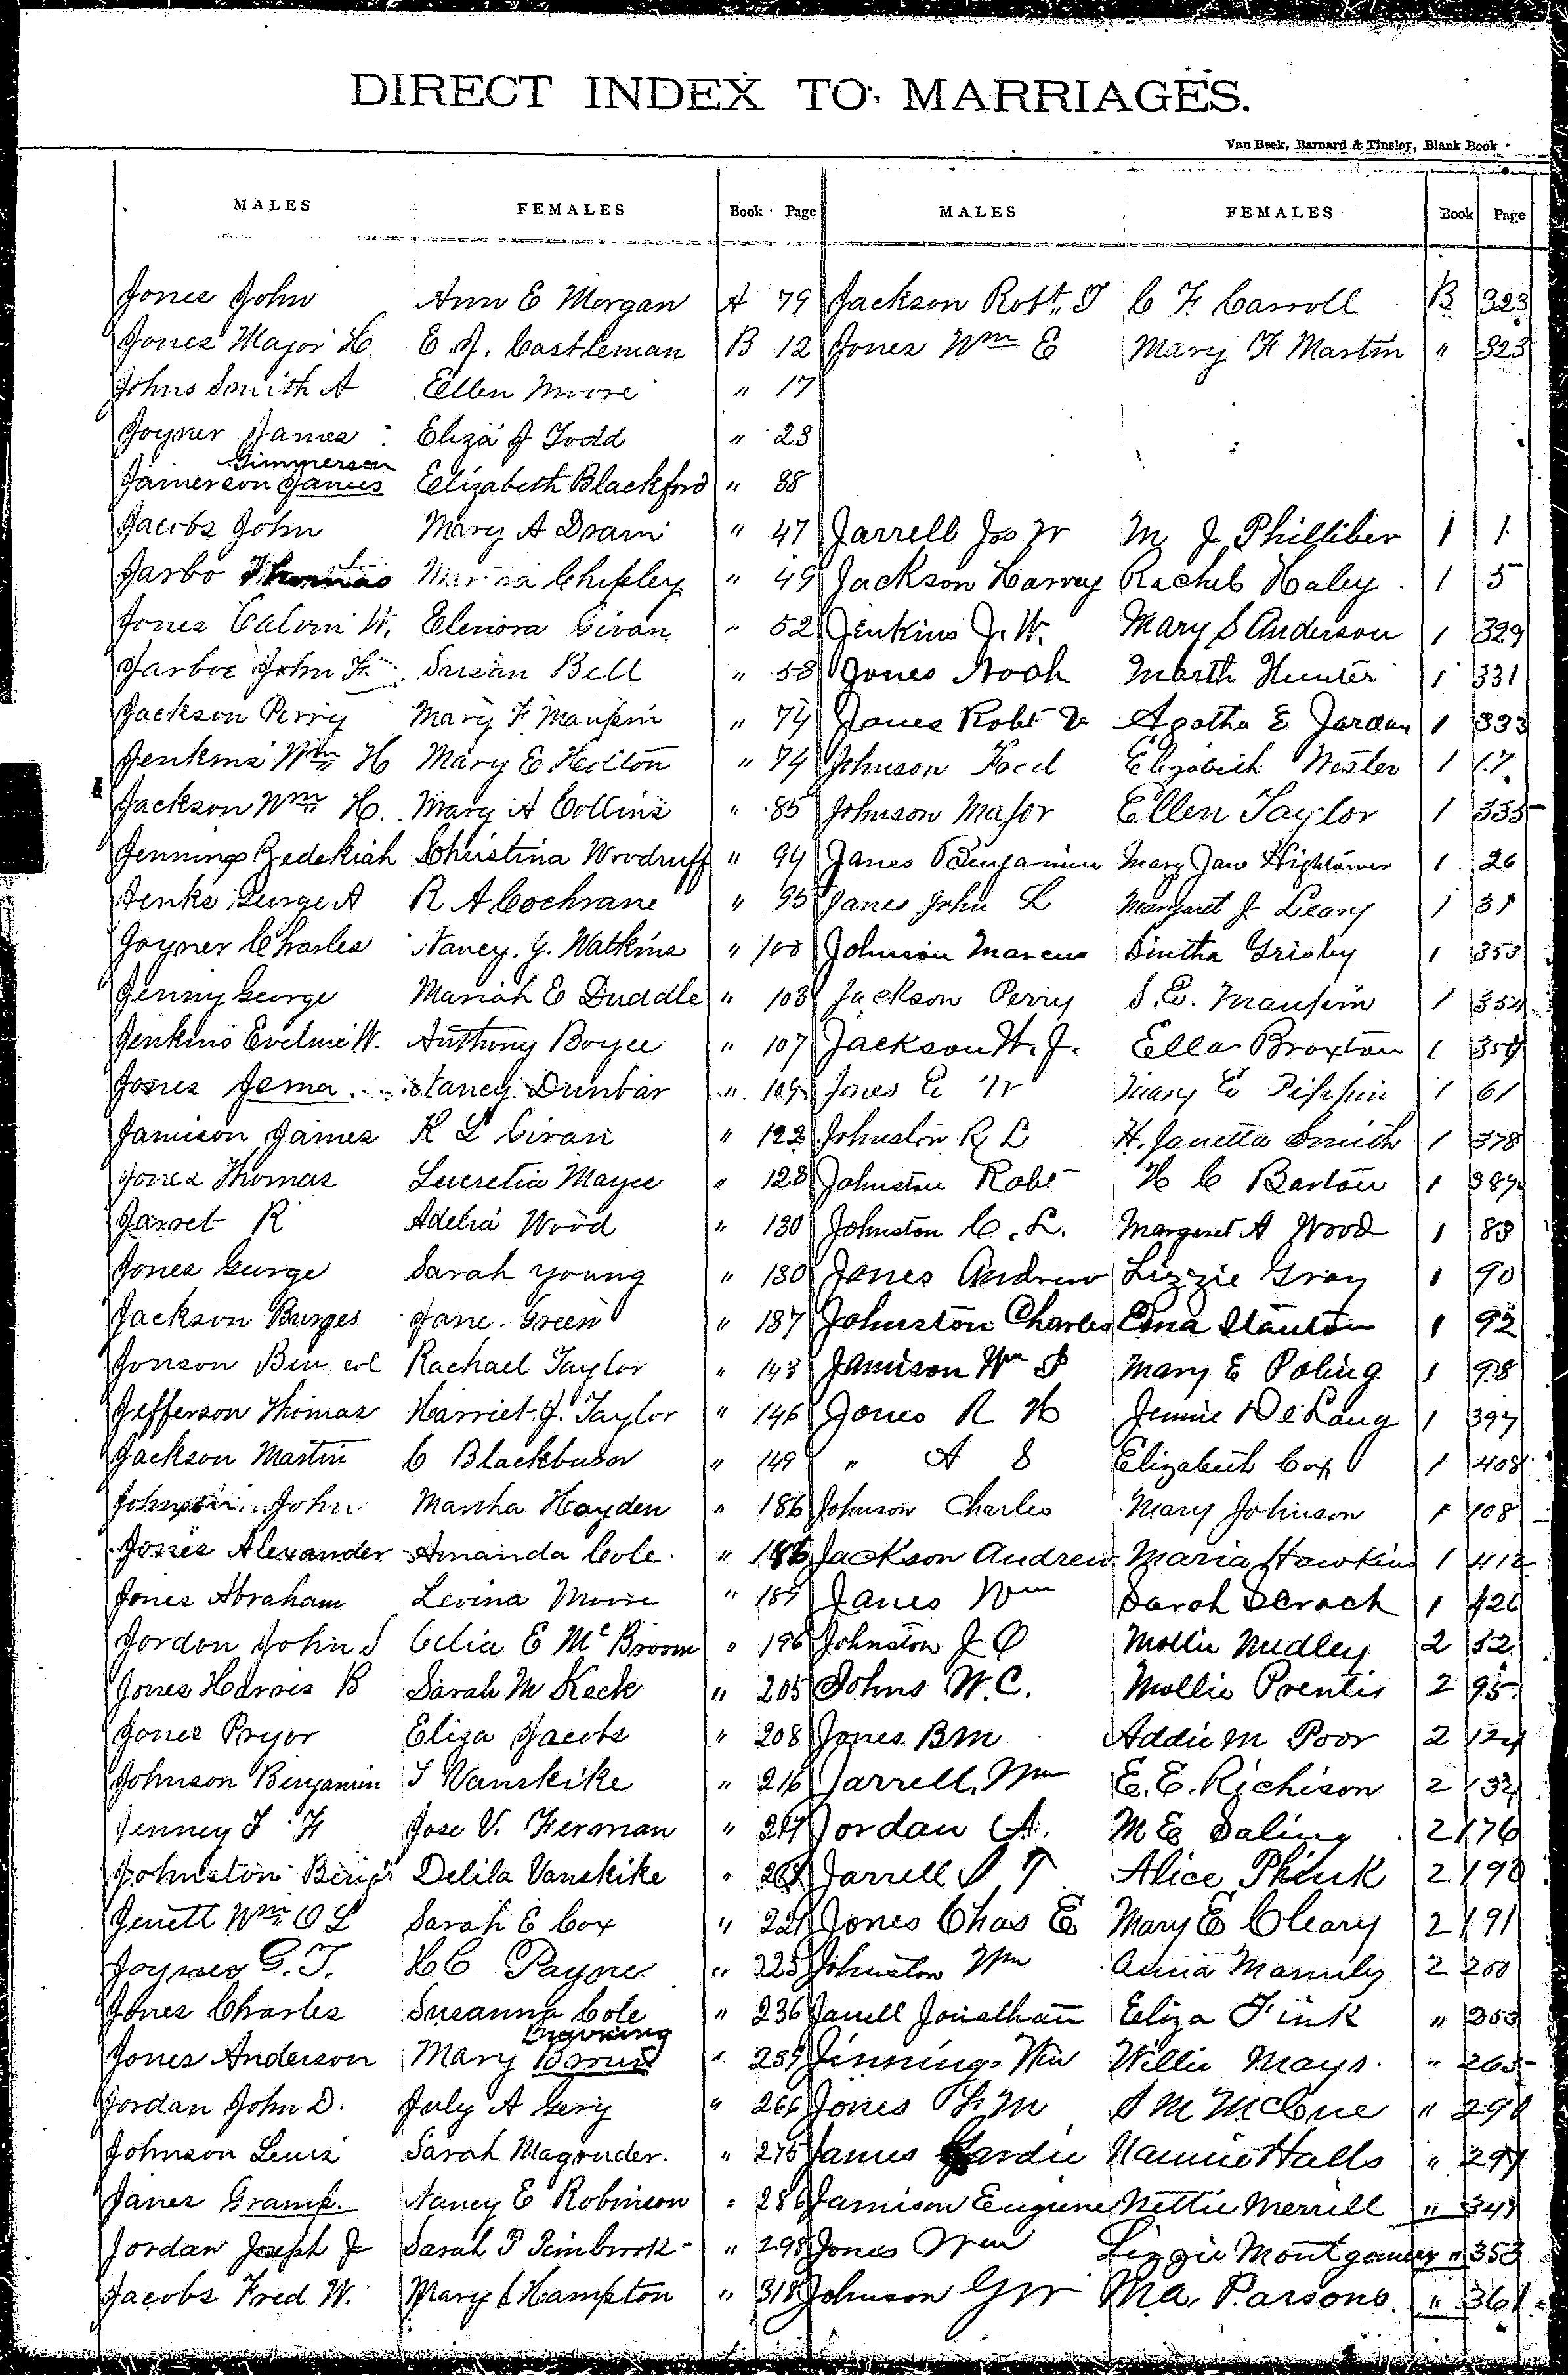 DIRECT INDEX TO MARRIAGES.
Van Beek, Barnard & Tinsley, Blank Book
MALES FEMALES Book Page MALES FEMALES Book Page
Jones John Ann E Morgan A 79 Jackson Robt. T C F. Carroll B 323
Jones Major H. E. J. Castleman B 12 Jones Wm E Mary F Martin " 323
Johns Smith A Ellen Moore " 17
Joyner James Eliza J Todd " 23
Gimmerson
Jamerson James Elizabeth Blackford " 38
Jacobs John Mary A " 47 Jarrell Jas W M J Philliber 1 1
Jarbo Thomas Chipley " 49 Jackson Harvey Rachel Haley 1 5
Jones Calvin W. Elenora Givan " 52 Jenkins J. W. Mary S Anderson 1 329
Jarboe John F. Susan Bell " 58 Jones Noah Marth Hunter 1 331
Jackson Perry Mary F. Maupin " 74 Jones Robt Agatha E Jordan 1 333
Jenkins Wm H Mary E " 74 Johnson Elizabeth 1 17
Jackson Wm H. Mary A Collins " 85 Johnson Major Ellen Taylor 1 335
Jennings Zedekiah Christina Woodruff " 94 Janes Benjamin Mary Jane Hightower 1 26
Jenks George A R A Cochrane " 95 Janes John L Margaret J Leary 1 31
Joyner Charles Nancy. J. Watkins " 100 Johnson Marcus Sintha Grisby 1 353
Jenny George Mariah E Duddle " 103 Jackson Perry S. E. Maupin 1 354
Jenkins W. Anthony Boyce " 107 Jackson H. J. Ella Broxton 1 354
Jones Jema Nancy Dunbar " 109 Jones E W Mary E Pippin 1 61
Jamison James K L Givan " 122 Johnston R L H. Janetta Smith 1 378
Jones Thomas Lucretia Mayee " 128 Johnston Robt H C Barton 1 387
Jarret R Adelia Wood " 130 Johnston C. L. Margaret A Wood 1 83
Jones George Sarah Young " 130 Jones Andrew Lizzie Gray 1 90
Jackson Burges Jane Green " 137 Johnston Charles Ema Stanton 1 92
Jonson Ben col Rachael Taylor " 143 Jamison Wm Mary E Poling 1 98
Jefferson Thomas Harriet J. Taylor " 146 Jones R H Jennie DeLang 1 397
Jackson Martin C Blackburn " 149 " A S Elizabeth Cox 1 408
John Martha Hayden " 186 Johnson Charles Mary Johnson 1 108
Jones Alexander Amanda Cole " 186 Jackson Andrew Maria Hawkins 1 412
Jones Abraham Levina Moore " 189 Janes Wm Sarah 1 426
Jordon John S Celia E McBroom " 196 Johnston J O Mollie Nudley 2 52
Jones Harris B Sarah M Keck " 205 Johns W. C. Mollie Prentis 2 95
Jones Pryor Eliza Jacobs " 208 Jones. B M Addie M Poor 2 124
Johnson Benjamin Vanskike " 216 Jarrell. Wm E. E. Richison 2 132
Jenney F F Jose V. Ferman " 217 Jordan A. M E Saling 2 176
Johnston Benj Delila Vanskike " Jarrell S T Alice 2 190
Jenett Wm O L Sarah E Cox " 221 Jones Chas E Mary E Cleary 2 191
Joynes G. T. H C Payne " 225 Johnston Wm Anna 2 200
Jones Charles Susanna Cole " 236 Jarrell Jonathan Eliza Fink " 253
Browning
Jones Anderson Mary Brown " 239 Jinnings Wm Willie Mays " 265
Jordan John D. July A Gery " 266 Jones M S M McCue " 290
Johnson Lewis Sarah Magruder. " 275 James Nannie Halls " 297
Janes Gramp. Nancy E Robinson " 286 Jamison Eugene Nettie Merrill " 347
Jordan Joseph J Sarah P Pembrook " 298 Jones Wm Lizzie Montgomery " 353
Jacobs Fred W. Mary Hampton " 318 Johnson G W M. A. Parsons. " 361